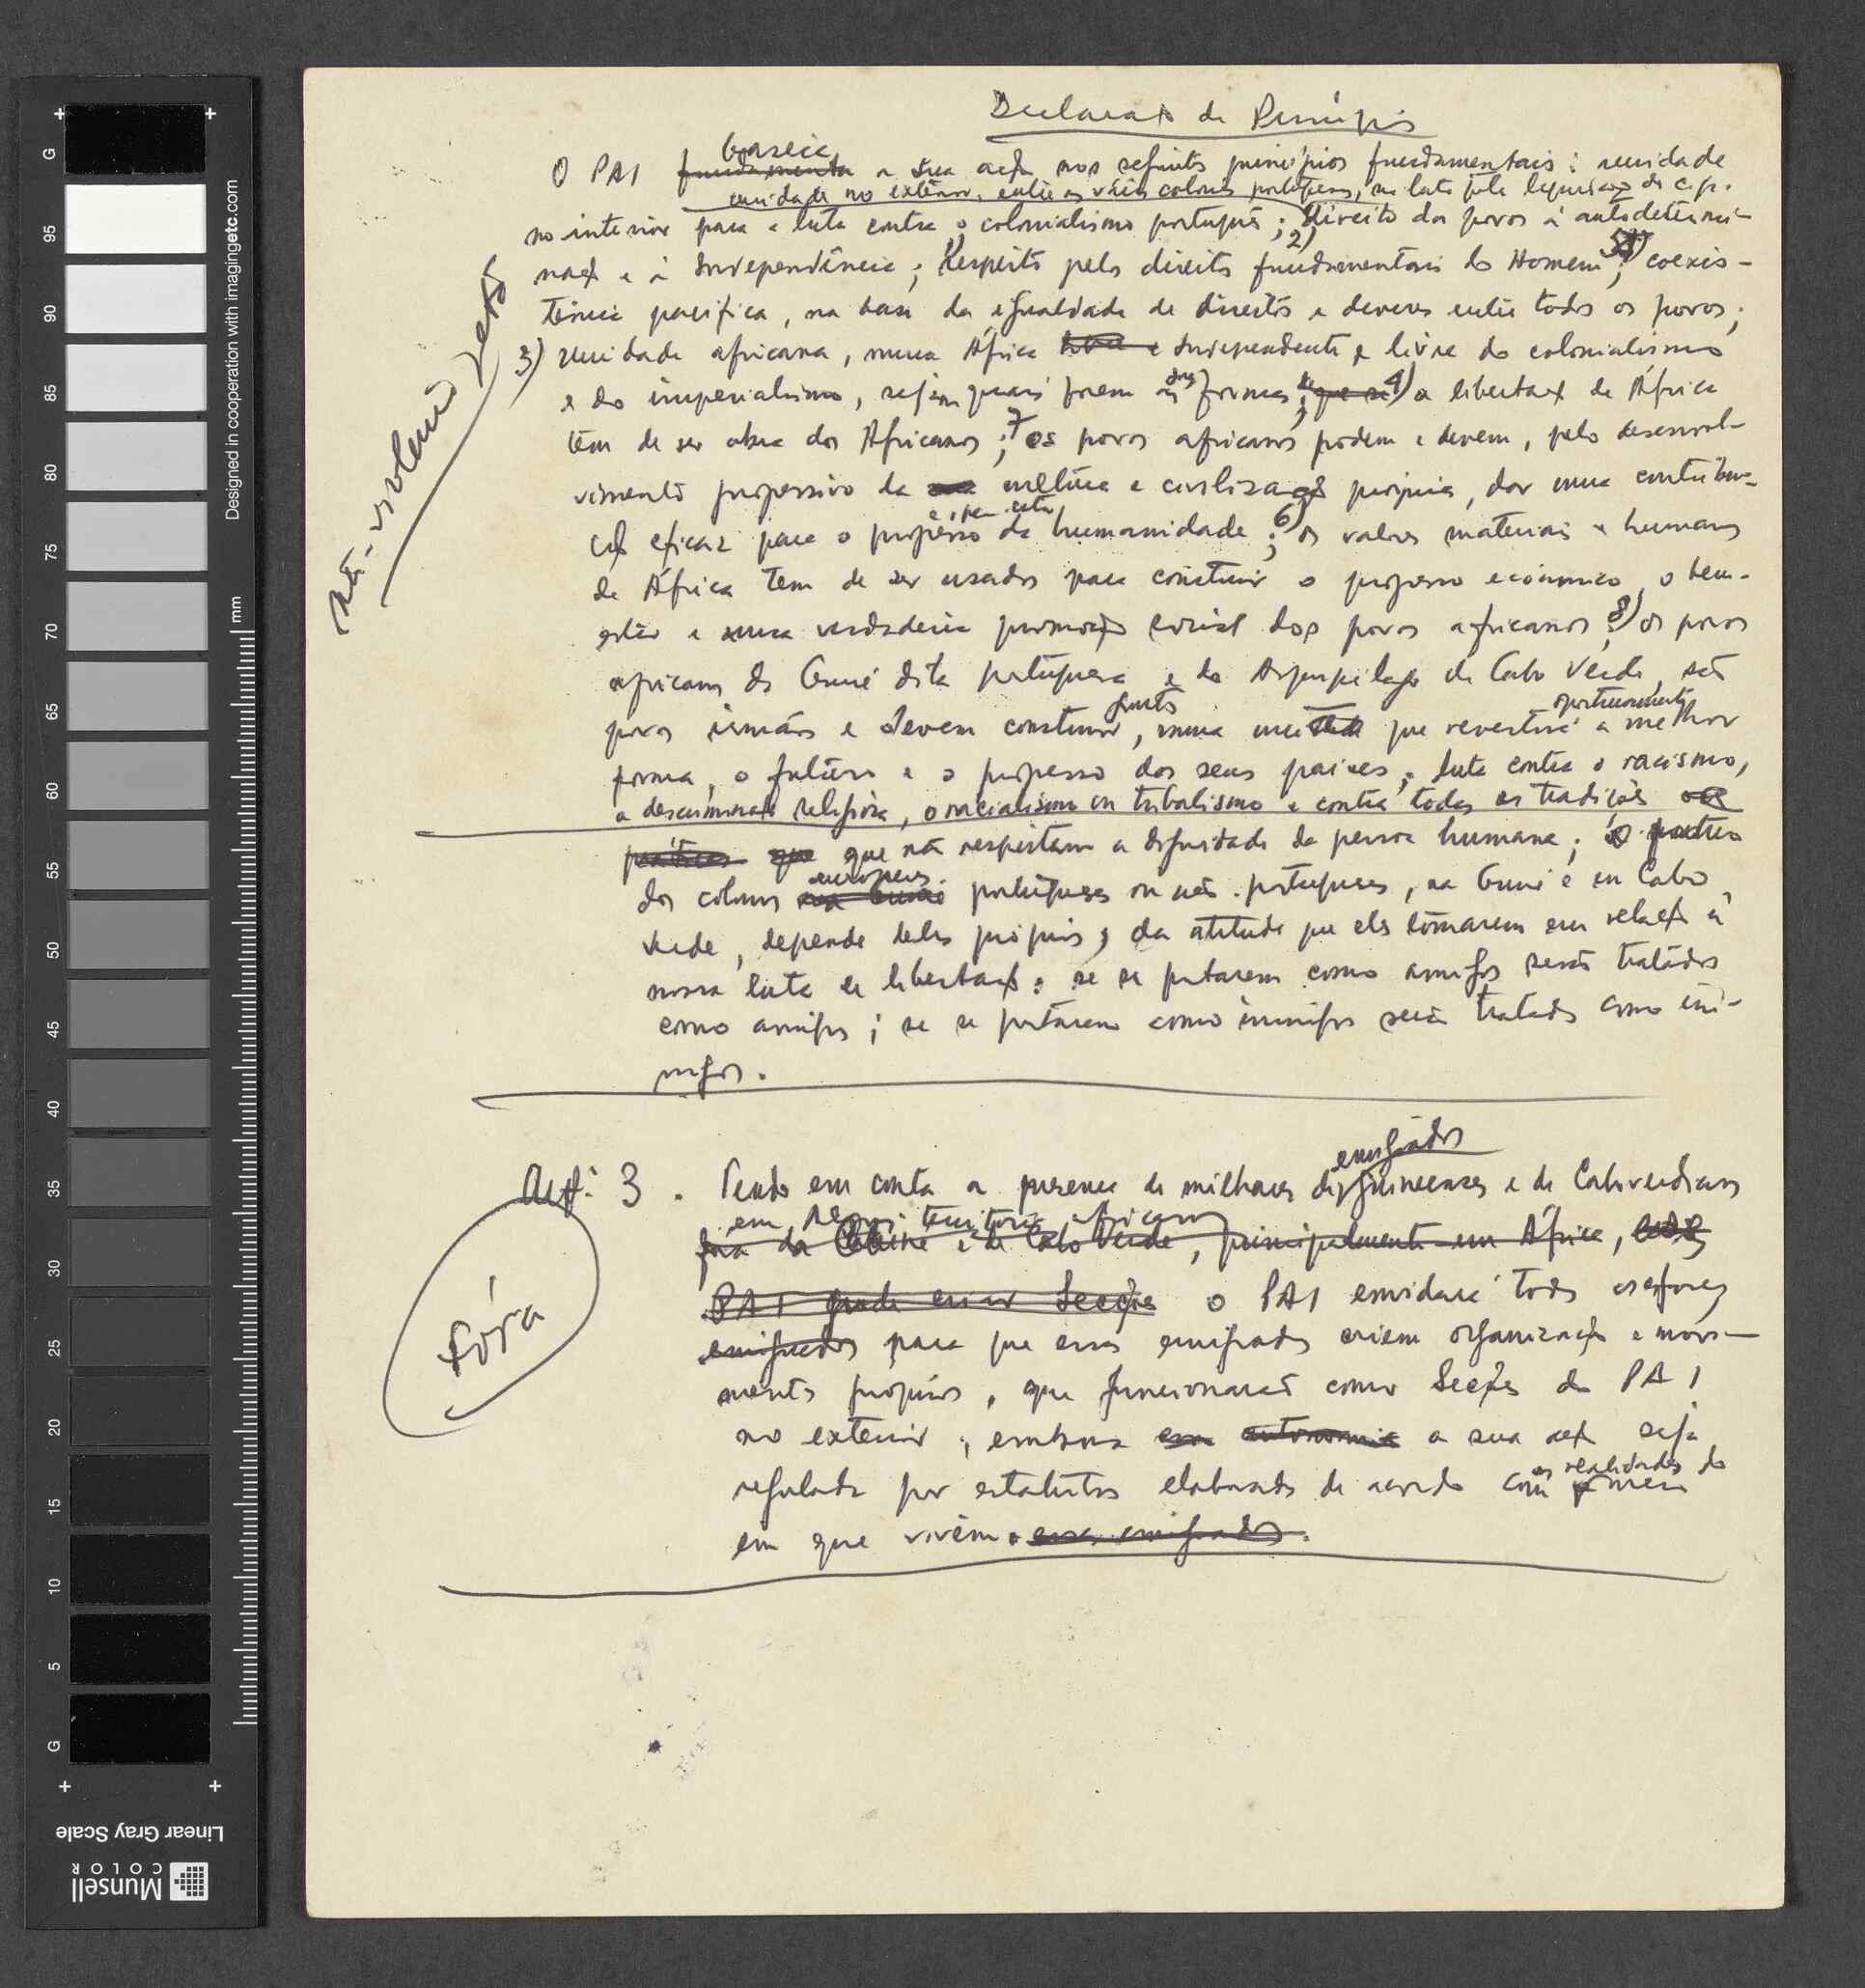 Declaração de Princípios
O PAI fundamenta baseia a sua acção nos seguintes princípios fundamentais: unidade
unidade no exterior, entre as várias colonias portuguesas, na luta pela liquidação do c.p.
no interior para a luta contra o colonialismo português; direito dos povos à autodetermi-
nação e à Independência; 2) Respeito pelos direitos fundamentais do Homem; 5) coexis-
tência pacífica, na base da igualdade de direitos e deveres entre todos os povos;
3) Unidade africana, numa África e Independente e livre do colonialismo
e do imperialismo, sejam quais forem as suas formas; que se 4) a libertação de África
tem de ser obra dos Africanos; 7 os povos africanos podem e devem, pelo desenvol-
vimento progressivo da cultura e civilização própria, dar uma contribui-
ção eficaz para o progresso da humanidade; 6) os valores materiais e humanos
de África tem de ser usados para construir o progresso económico, o bem-
estar e uma verdadeira promoção social dos povos africanos; 8) os povos
africanos da Guiné dita portuguesa e do Arquipélago de Cabo Verde, são
povos irmãos e devem construir juntos, numa unidade que revestirá oportunamente a melhor
forma, o futuro e o progresso dos seus países; luta contra o racismo,
a descriminação religiosa, o racialismo ou tribalismo e contra todas as tradições ou
práticas que que não respeitam a dignidade da pessoa humana; o futuro
dos colonos na Guiné europeus portugueses ou não portugueses, na Guiné e em Cabo
Verde, depende deles próprios, da atitude que eles tomarem em relação à
nossa luta de libertação: se se portarem como amigos serão tratados
como amigos; se se portarem como inimigos serão tratados como ini-
migos.
não-violência
Artº 3. Tendo em conta a presença de milhares de guineenses emigrados e de Caboverdianos
em territórios africanos
fora da Guiné e de Cabo Verde, principalmente em África,
PAI pode criar Secções o PAI envidará todos os esforços
emigrados para que esses emigrados criem organizações e movi-
mentos próprios, que funcionarão como Secções do PAI
no exterior, embora em autonomia a sua acção seja
regulada por estatutos elaborados de acordo com as realidades do meio
em que vivem. esses emigrados.
Fóra
Designed in cooperation with imagingetc.com
mm
G
95
90
85
80
75
70
65
60
55
50
45
40
35
30
25
20
15
10
5
G
Linear Gray Scale
Munsell
COLOR